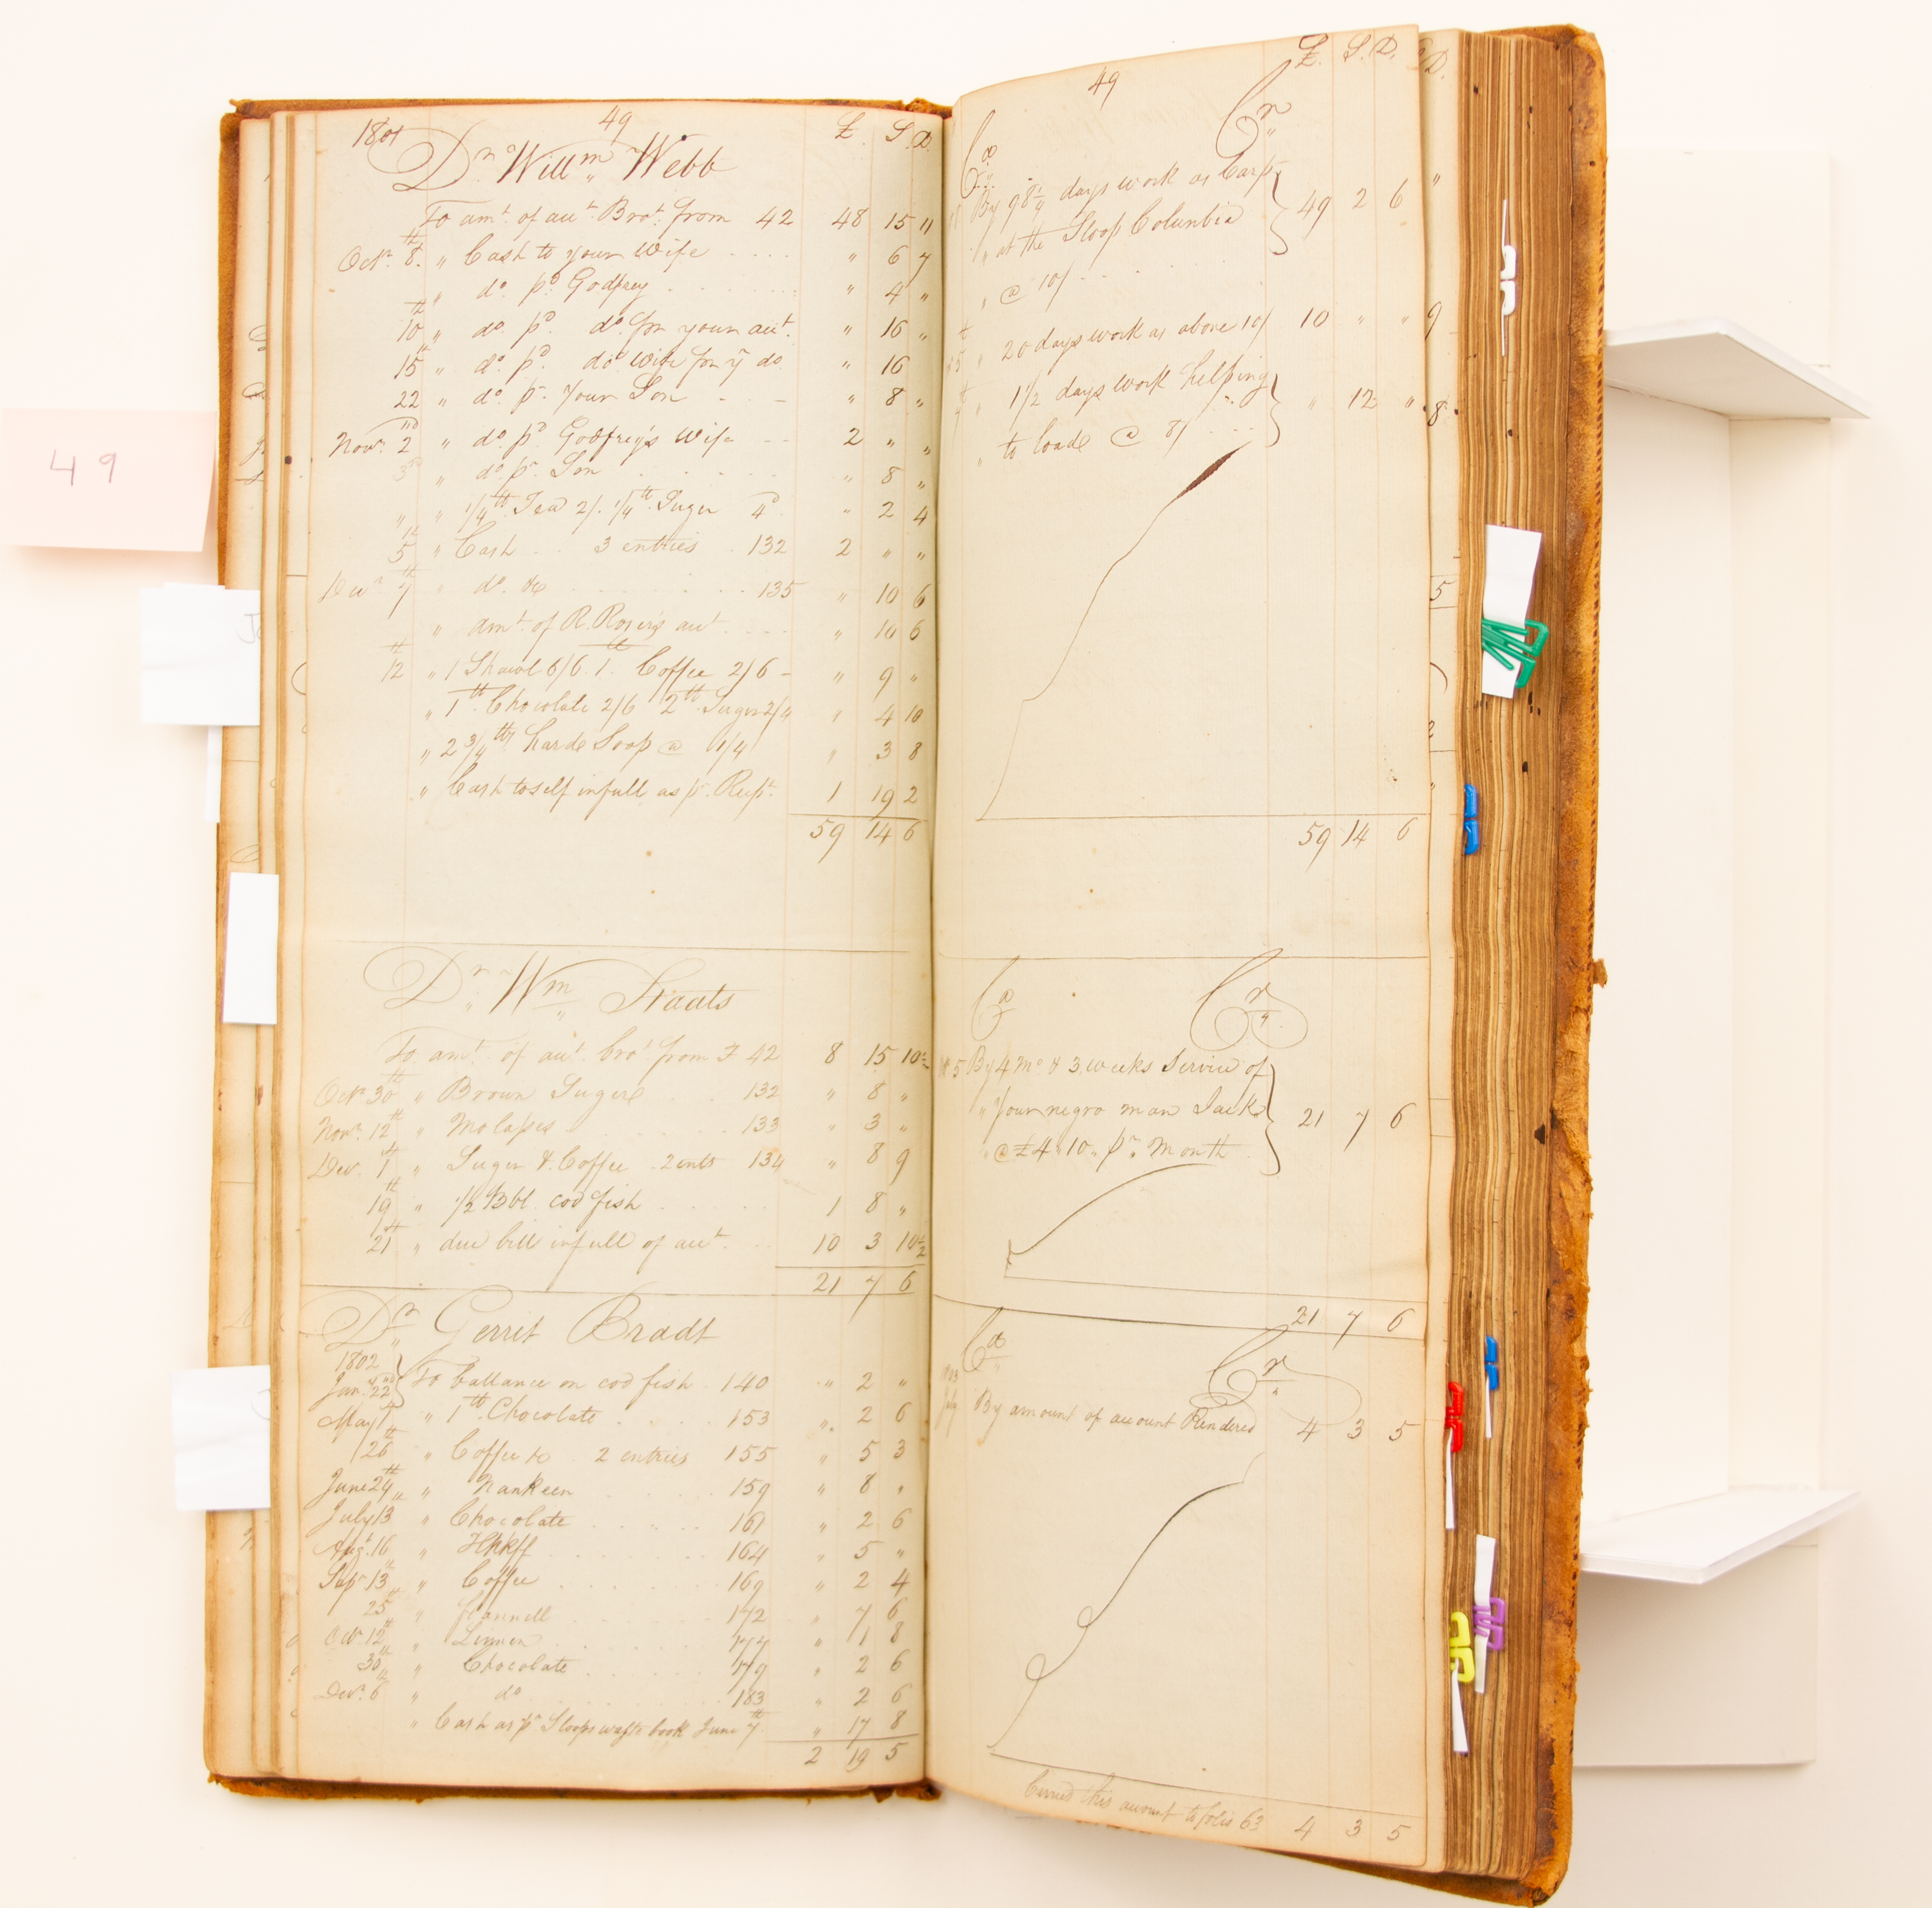 49
1801 49 £ S D
Dr Willm Webb
To amt of aut Brot from 42 48 15 11
Octr 8th " Cash to your Wife " 6 7
" do pd Godfrey " 4 "
10th " do pd do for your aut " 16 "
15th " do pd do Wife for yr do " 16
22 " do pr Your Son " 8 "
Novr 2nd " do pd Godfrey's Wife 2 " "
3rd " do pr Son " 8 "
" " 1/4 lb Tea 2/. 1/4 lb Suger 4d " 2 4
5th " Cash 3 entries 132 2 " "
Decr 7th " do &c 135 " 10 6
" amt of R. Rosie's aut " 10 6
12th " 1 Shawl 6/6 1 lb Coffee 2/6 " 9 "
" 1 lb Chocolate 2/6 2 lb Suger 2/4 " 4 10
" 2 3/4 lb harde Soap @ 1/4 " 3 8
" Cash to self in full as pr Rept 1 19 2
59 14 6
Dr Wm Staats
To amt of aut brot from F 42 8 15 10 1/2
Octr 30th " Brown Sugere 132 " 8 "
Novr 12th " Molases 133 " 3 "
Decr 1st " Suger & Coffee 2 ents 134 " 8 9
19th " 1/2 Bbl cod fish 1 8 "
21st " due bill in full of aut 10 3 10 1/2
21 7 6
Dr Gerrit Bradt
1802
Jany 22nd To ballance on cod fish 140 " 2 "
May 1st " 1 lb Chocolate 153 " 2 6
26th " Coffee &c 2 entries 155 " 5 3
June 24th " Nankeen 159 " 8 "
July 13 " Chocolate 161 " 2 6
Augt 16 " 164 " 5 "
Sepr 13th " Coffee 169 " 2 4
25th " flannell 172 " 7 6
Octr 12th " Linnen 177 " 1 8
30th " Chocolate 179 " 2 6
Decr 6th " do 183 " 2 6
" Cash as pr Sloops waste book June 7th " 17 8
2 19 5
49 £. S. D.
Ca Cr
By 98 1/4 days work as Carpr
" at the Sloop Columbia 49 2 6
" @ 10/
" 20 days work as above 10/ 10 " "
" 1 1/2 days work helping
" to loade @ 8/ " 12 "
59 14 6
Ca Cr
5 By 4 mo & 3 weeks Service of
" Your negro man Jack 21 7 6
" @ £4 " 10 " pr Month
21 7 6
Ca Cr
July By amount of account Rendered 4 3 5
Carried this account to folio 63 4 3 5